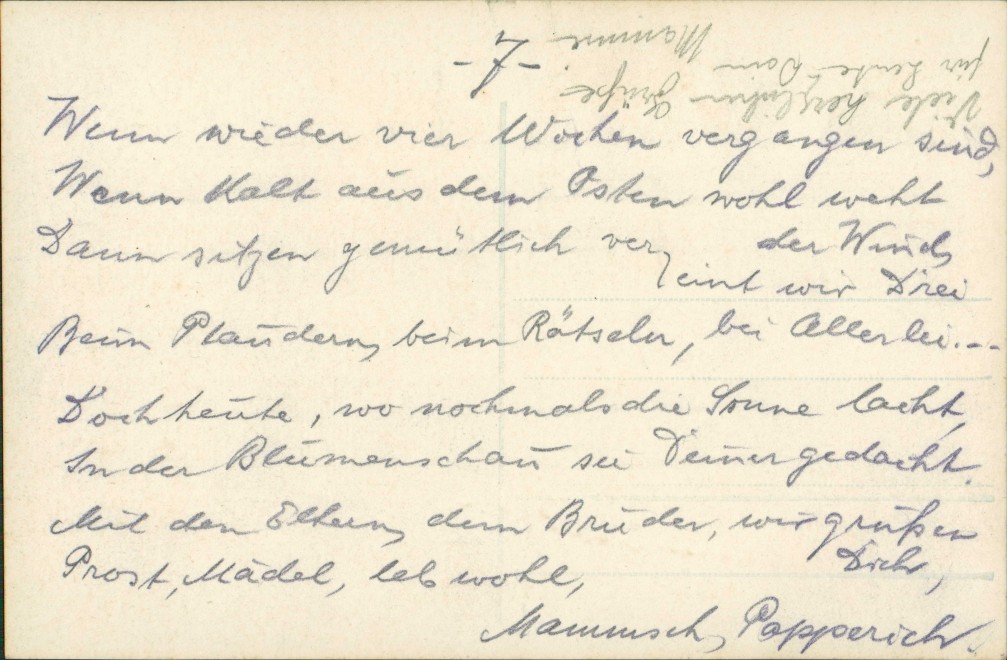 -7-
Wenn wieder vier Wochen vergangen sind,
Wenn kalt aus dem Osten wohl weht
der Wind,
Dann sitzen gemütlich ver,
eint wir Drei
Beim Plaudern, beim Rätseln, bei Allerlei...
Doch heute, wo nochmals die Sonne lacht,
In der Blumenschau sei Deiner gedacht.
Mit den Eltern, dem Bruder, wir grüßen
Dich,
Prost, Mädel, leb wohl,
Mammsch, Papperich.
Viele herzlichen Grüße
für heute Dein
Mamme.